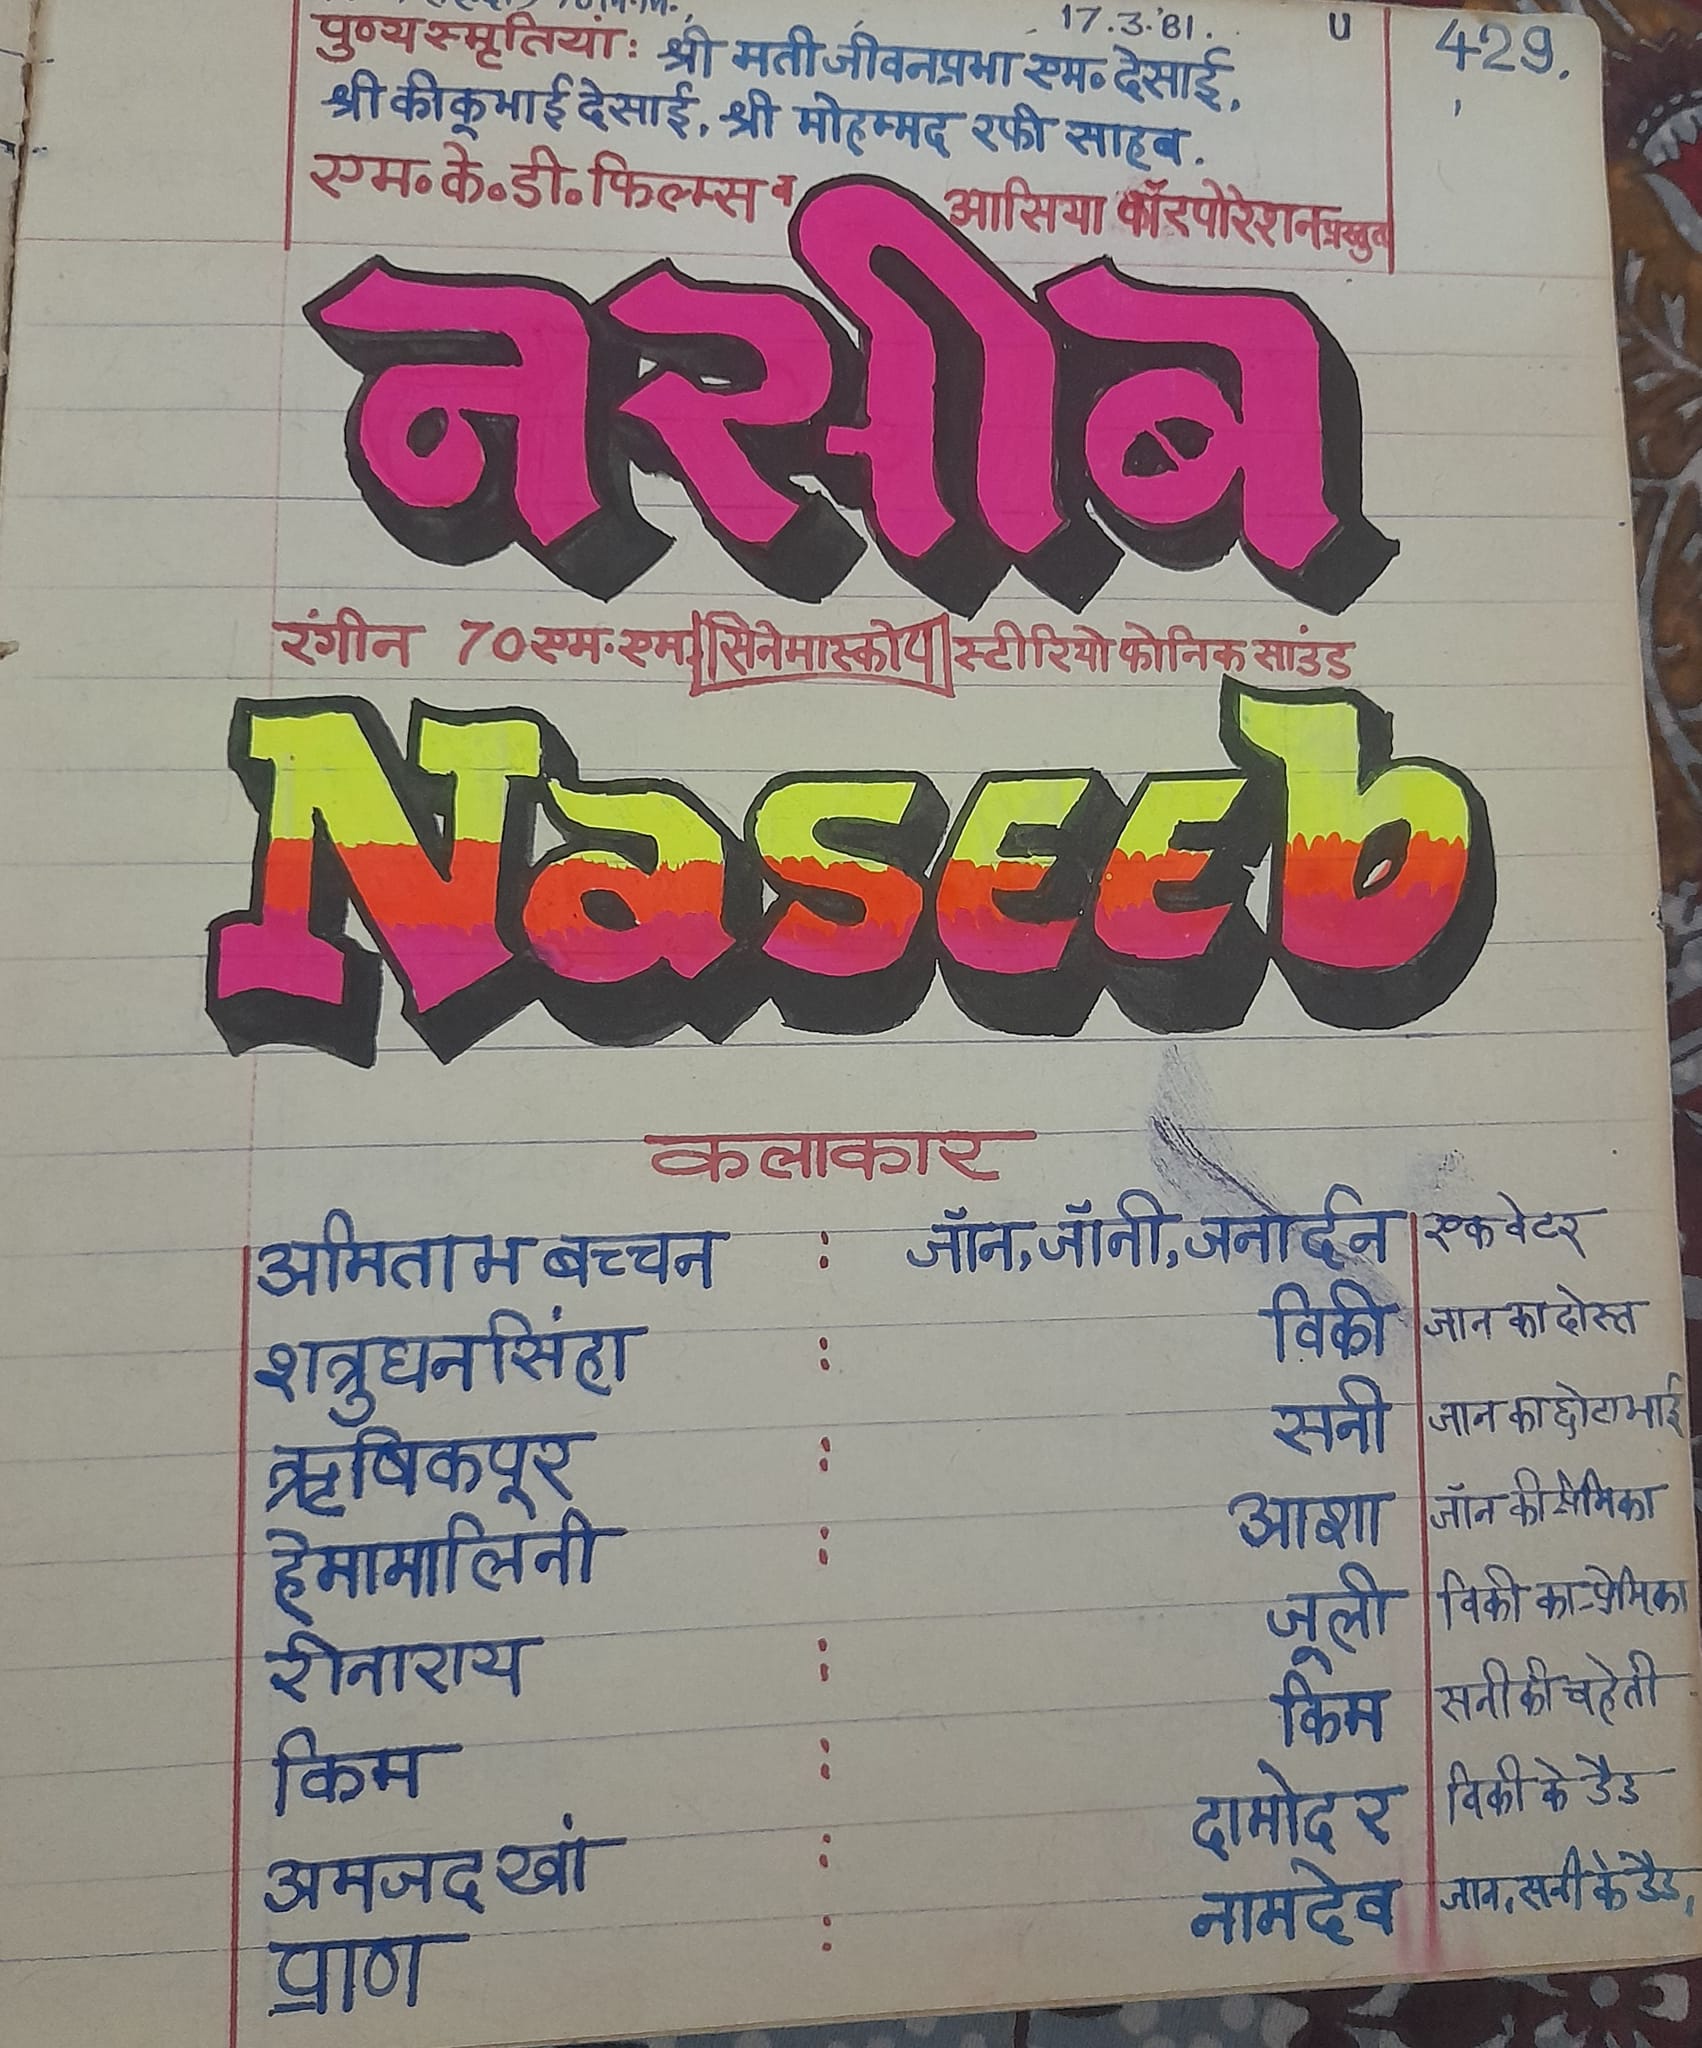 17.3.'81. U 429.
पुण्य स्मृतियां: श्री मती जीवनप्रभा एम॰ देसाई,
श्री कीकूभाई देसाई, श्री मोहम्मद रफी साहब.
एम॰ के॰ डी॰ फिल्म्स व आसिया कॉरपोरेशन प्रस्तुत
नसीब
रंगीन 70 एम.एम. सिनेमास्कोप स्टीरियोफोनिक साउंड
Naseeb
कलाकार
अमिताभ बच्चन : जॉन, जॉनी, जनार्दन एक वेटर
शत्रुघन सिंहा : विकी जान का दोस्त
ऋषिकपूर : सनी जान का छोटा भाई
हेमामालिनी : आशा जॉन की प्रेमिका
रीनाराय : जूली विकी का प्रेमिका
किम : किम सनी की चहेती
अमजद खां : दामोदर विकी के डैड
प्राण : नामदेव जान, सनी के डैड,